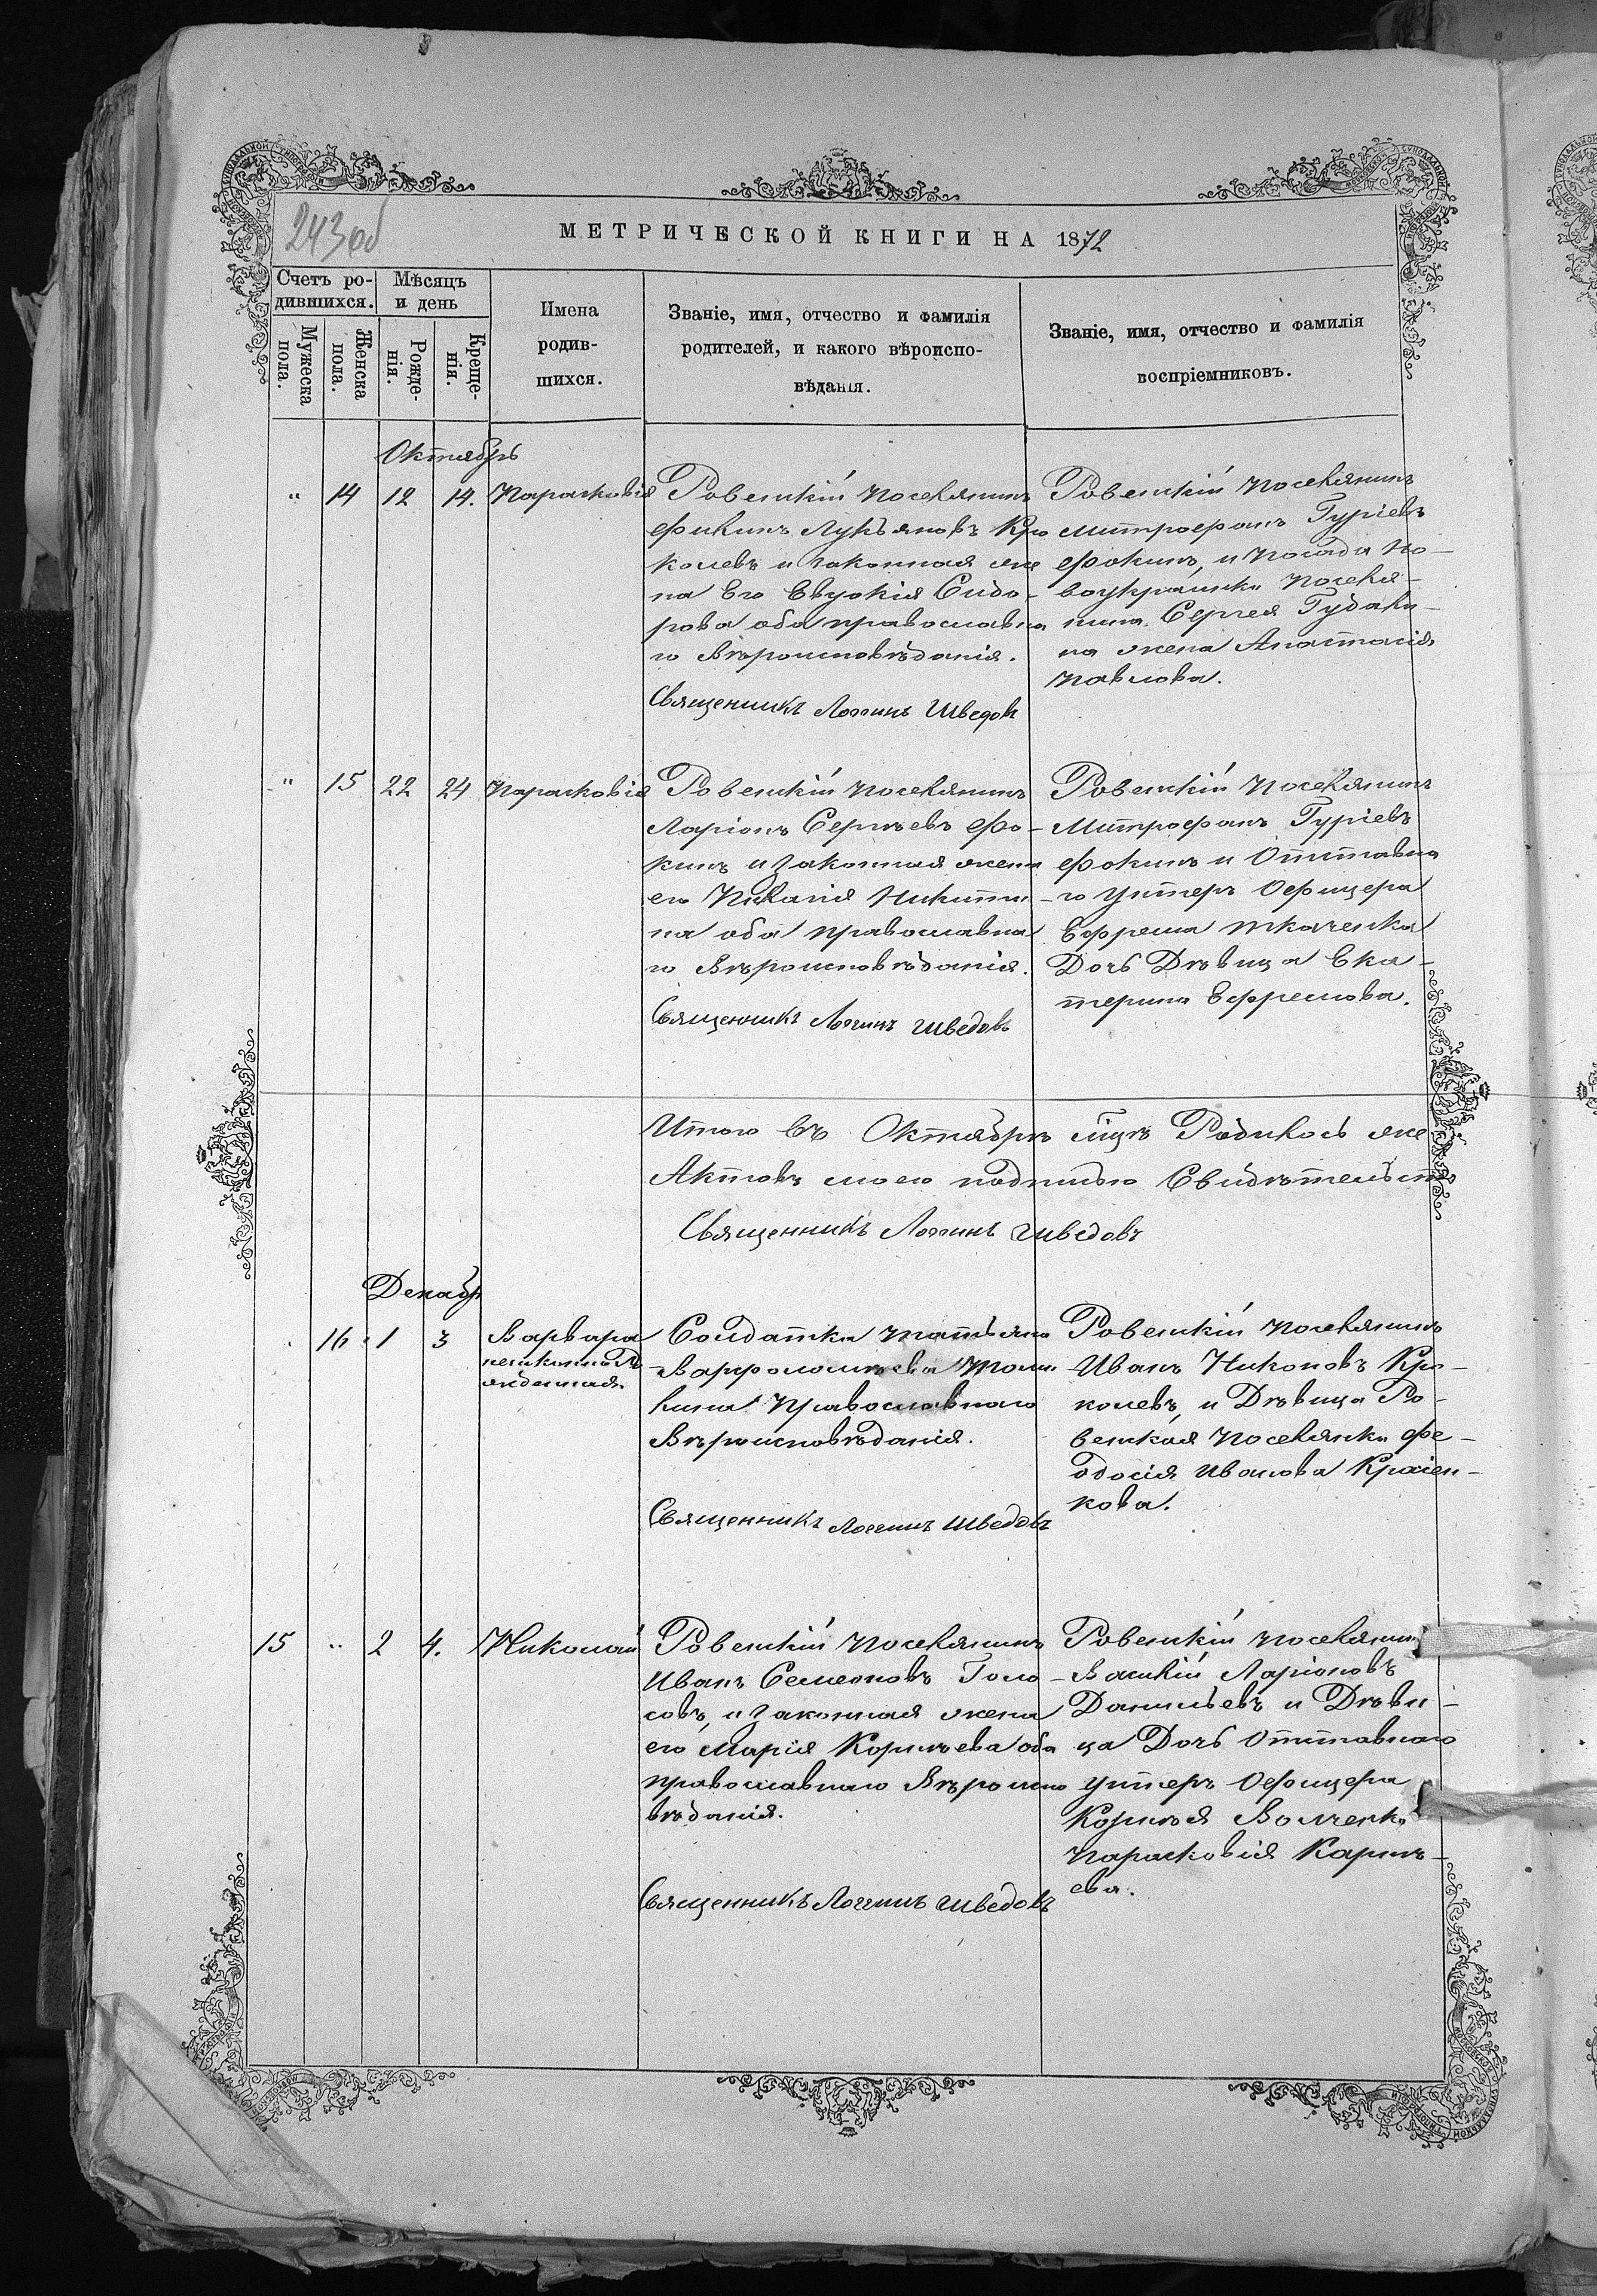 243об
МЕТРИЧЕСКОЙ КНИГИ НА 1872
Счетъ ро-
дившихся.
Мѣсяцъ
и день
Мужеска
пола.
Женска
пола.
Рожде-
нія.
Креще-
нія.
Имена
родив-
шихся.
Званіе, имя, отчество и фамилія
родителей, и какого вѣроиспо-
вѣданія.
Званіе, имя, отчество и фамилія
воспріемниковъ.
Октябрь
" 14 12 14. Парасковія
Ровенскій поселянинъ
Лукъяновъ Крю
ковъ и законная же
на Его Евдокія Сидо-
рова оба православна
го Вѣроисповѣданія.
Священникъ Логинъ Шведовъ
Ровенскій поселянинъ
Митрофанъ Гуріевъ
Фокинъ, и посада Но-
воукраинки поселя-
нина Сергея
на жена Анастасія
Павлова.
" 15 22 24 Парасковія
Ровенскій поселянинъ
Ларіонъ Сергѣевъ Фо-
кинъ и законная жена
его Никити
на оба православна
го Вѣроисповѣданія.
Священникъ Логинъ Шведовъ
Ровенскій поселянинъ
Митрофанъ Гуріевъ
Фокинъ и Отставна
-го Унтеръ Офицера
Ефрема Ткаченка
Дочь Дѣвица Ека-
терина Ефремова.
Итого въ Октябрѣ Родилось же
Актовъ моею подписью Свидѣтельст
Священникъ Логинъ Шведовъ
Декабр
16 1 3 Варвара
незаконноро
жденная
Солдатка Татьяна
Варфоломѣева
Православнаго
Вѣроисповѣданія.
Священникъ Логинъ Шведовъ
Ровенскій поселянинъ
Иванъ Никоновъ Крю-
ковъ, и Дѣвица Ро-
венская поселянка Фе-
одосія Иванова
кова.
15 " 2 4. Николай
Ровенскій поселянинъ
Иванъ Семеновъ Голо
совъ, и законная жена
его Марія Корнѣева оба
православнаго Вѣроиспо
вѣданія.
Священникъ Логинъ Шведовъ
Ровенскій поселянинъ
Василій Ларіоновъ
Данильевъ и Дѣви-
ца Дочь Отставнаго
Унтеръ Офицера
Корнѣя Волченко
Парасковія Карнѣ-
ева.